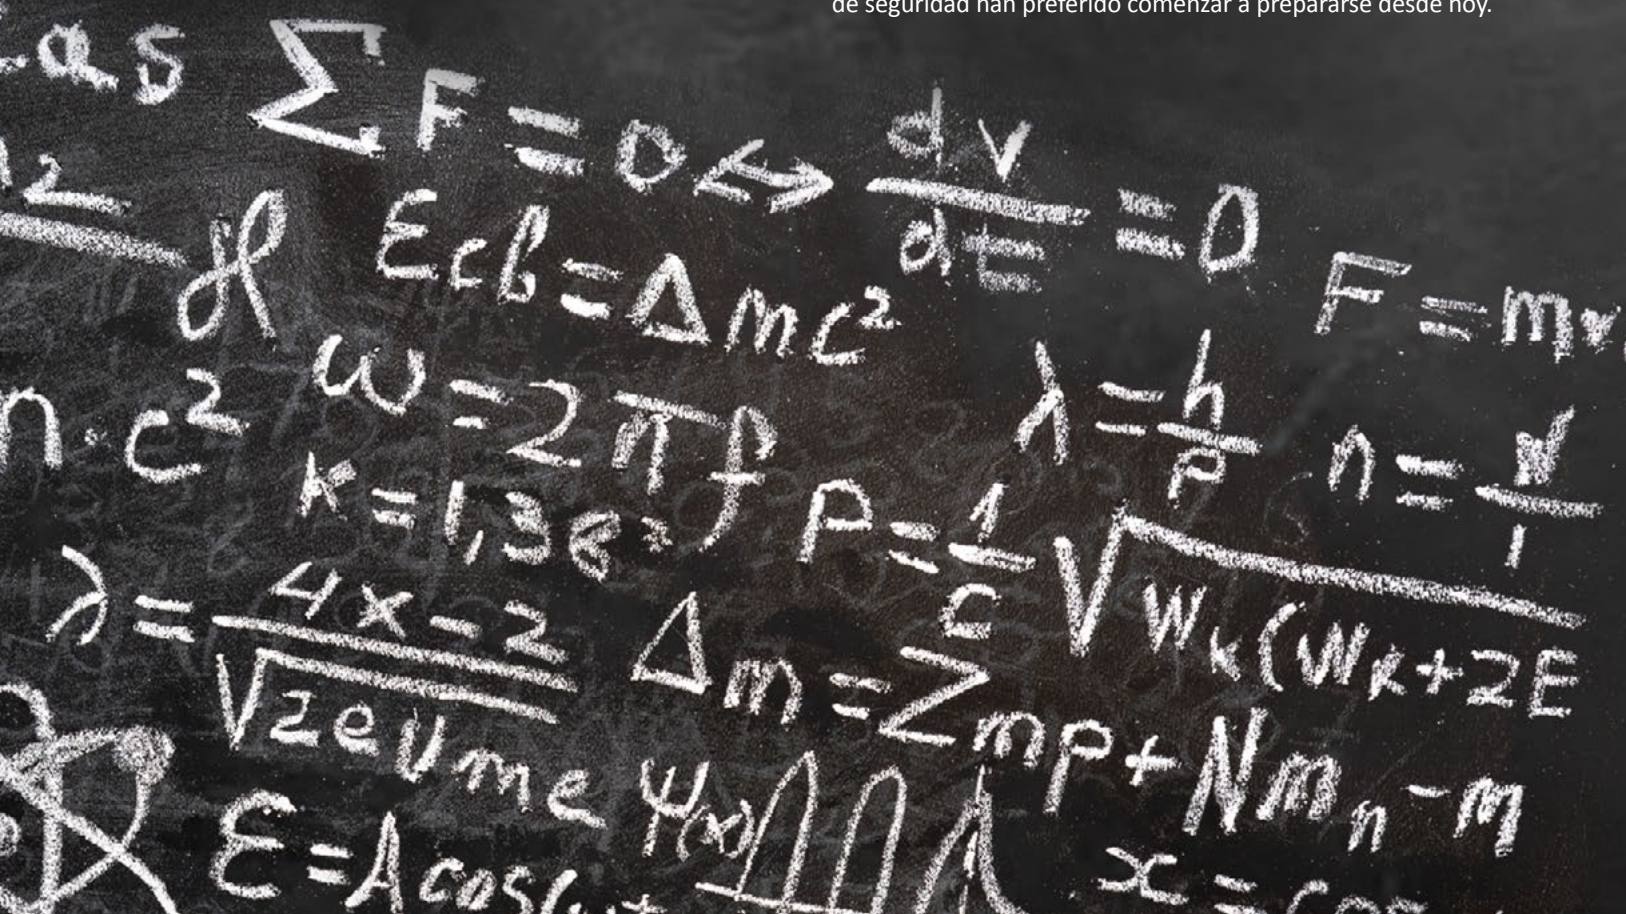 de seguridad han preferido comenzar a prepararse desde hoy.
as ΣF = 0 ↔ dv/dt = 0
2
Ecb = Δmc²
F = m
n·c² ω = 2πf
λ = h/p n = N/1
k = 1,38
P = 1/c √Wk(Wk+2E
λ = 4x-2/√2eUme
Δm = Zmp + Nmn - m
Ψ(x)
ε = A cos(
x = cos